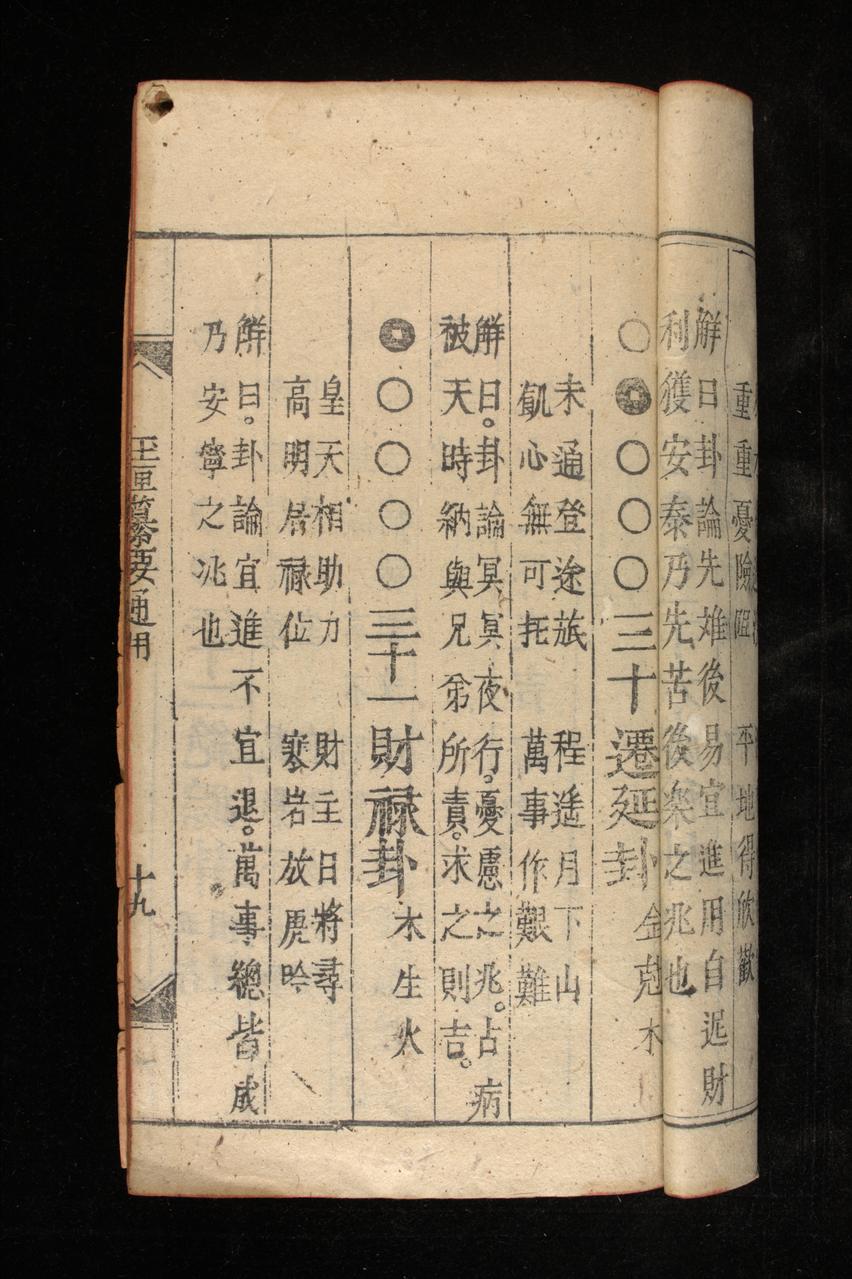 重重憂險阻 平地得欣歡
解曰卦論先难後易宜進用自迟財
利獲安泰乃先苦後楽之兆也
○●○○○三十遷延卦 金尅木
未通登途旅 程遥月下山
飢心無可托 萬事作艱難
解曰。卦論冥冥夜行。憂慮之兆。占病
被天時納與兄弟所責。求之則吉。
●○○○○三十一財祿卦 木生火
皇天相助力 財主日將尋
高明居祿位 寒岩放虎吟
解曰。卦論宜進不宜退。萬事總皆成
乃安寧之兆也
玉匣纂要通用 十九